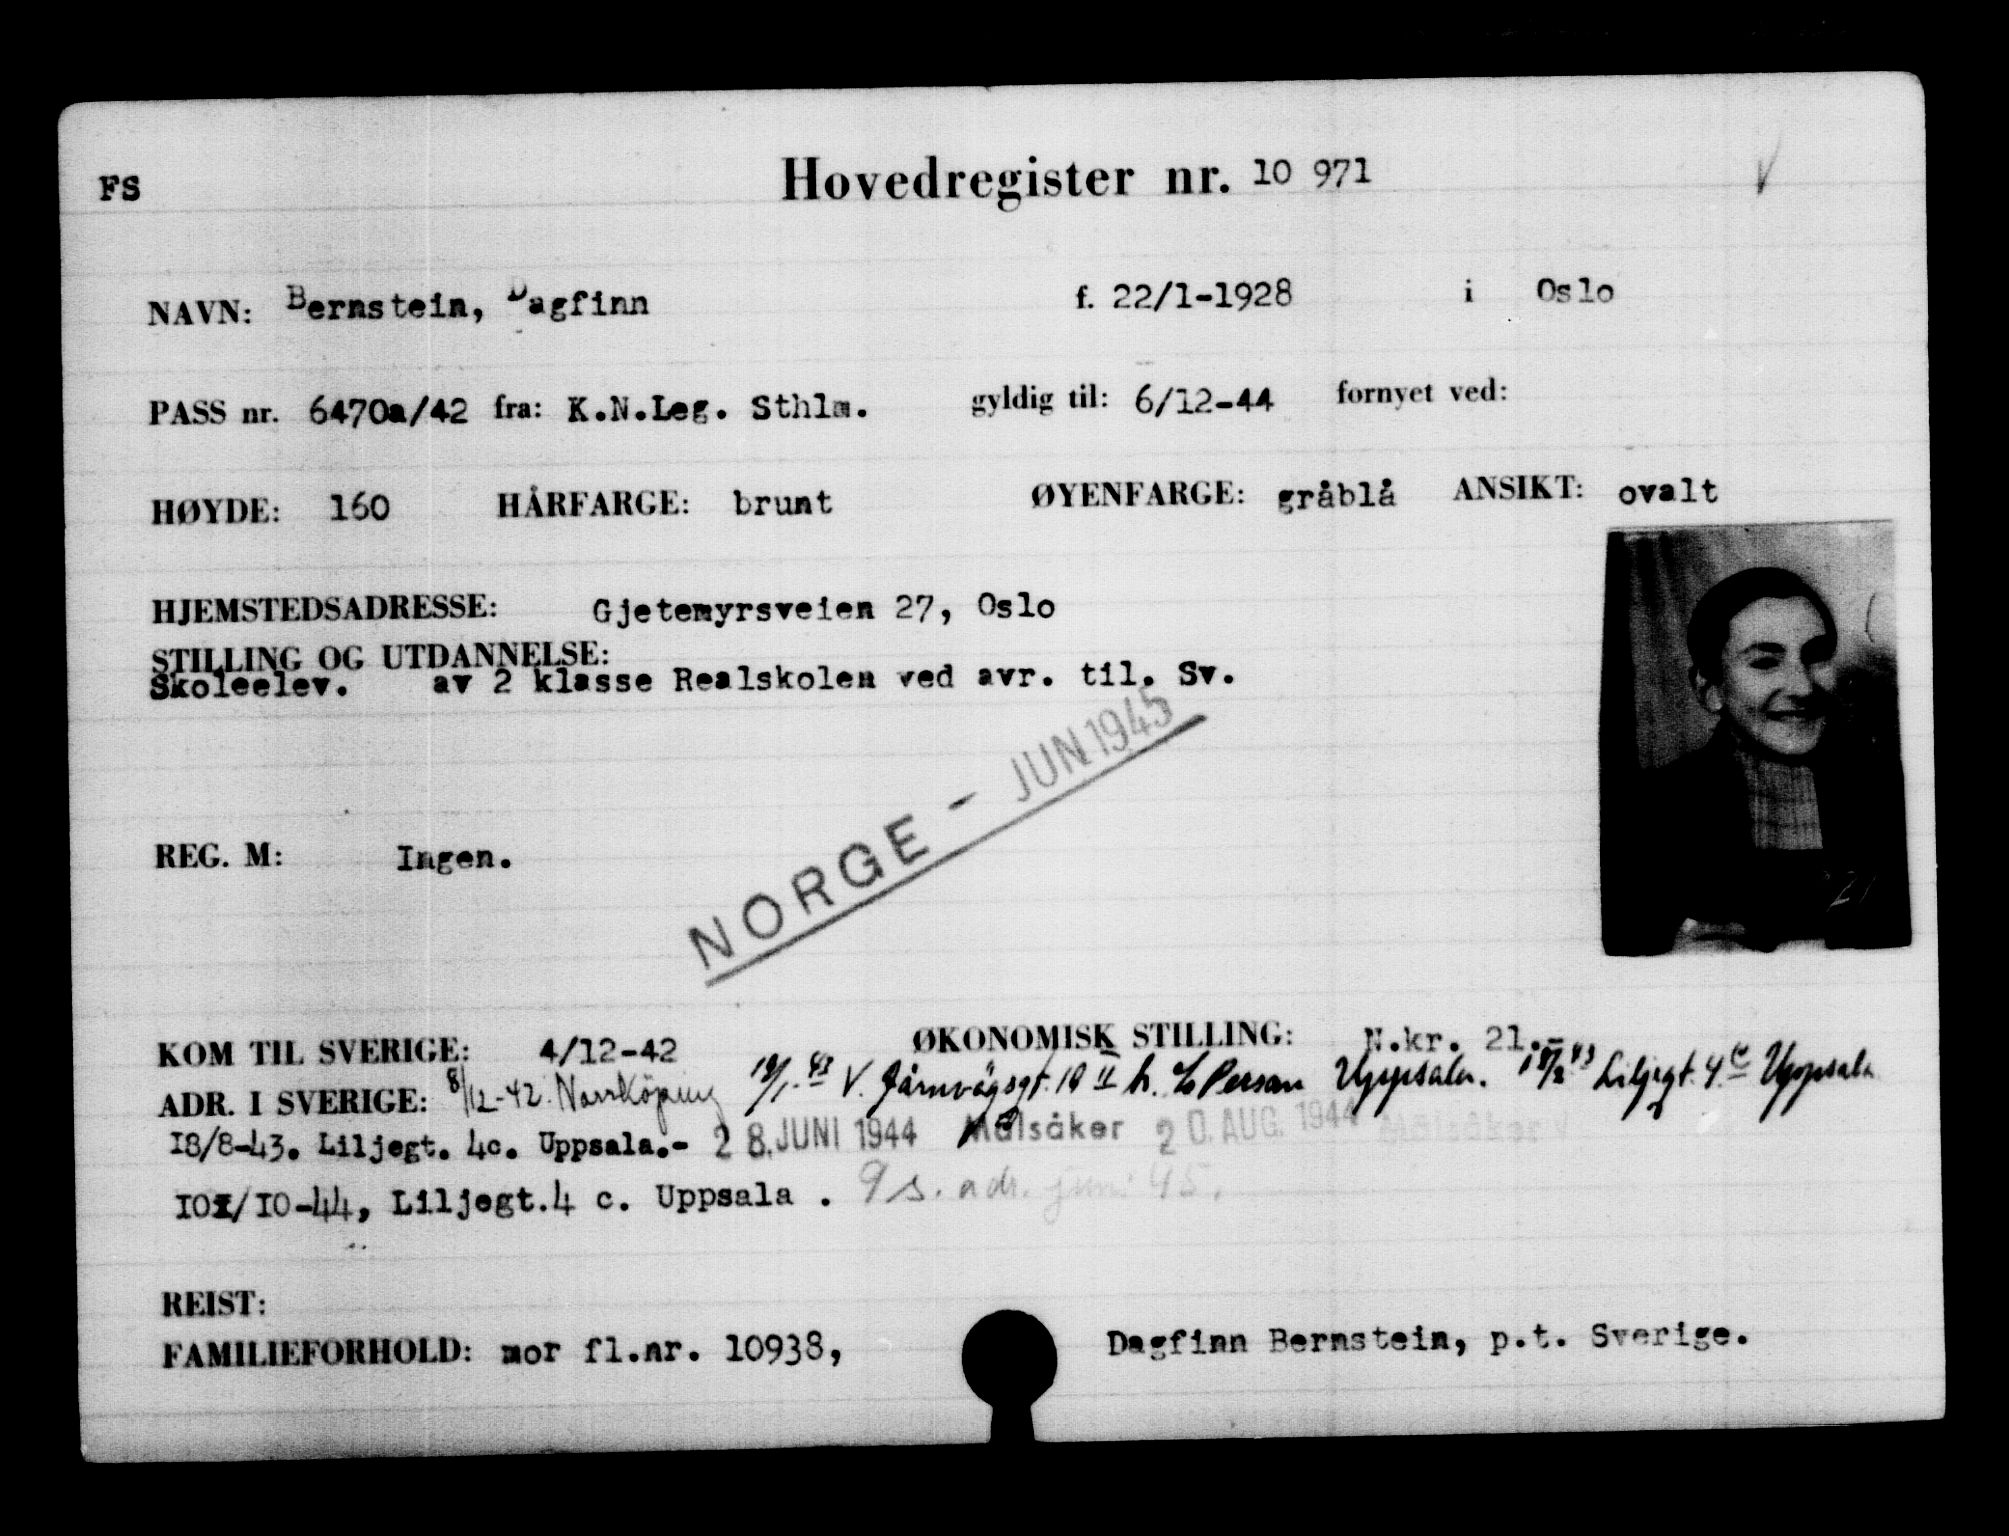 FS
Hovedregister nr. 10 971
NAVN: Bernstein, Dagfinn f. 22/1-1928 i Oslo
PASS nr. 6470a/42 fra: K.N.Leg. Sthlm. gyldig til: 6/12-44 fornyet ved:
HØYDE: 160 HÅRFARGE: brunt ØYENFARGE: gråblå ANSIKT: ovalt
HJEMSTEDSADRESSE: Gjetemyrsveien 27, Oslo
STILLING OG UTDANNELSE:
Skoleelev. av 2 klasse Realskolen ved avr. til. Sv.
NORGE - JUN 1945
REG. M: Ingen.
KOM TIL SVERIGE: 4/12-42 ØKONOMISK STILLING: N.kr. 21.-
ADR. I SVERIGE: 8/12-42. Norrköping 19/1.43 V. Järnvägsgt. 10 II h. Persson Uppsala. Liljegt. 4c Uppsala
18/8-43. Liljegt. 4c. Uppsala.- 28. JUNI 1944 Målsåker 20. AUG. 1944 Målsåker
10/10-44, Liljegt.4 c. Uppsala . 9 s. adr. juni 45.
REIST:
FAMILIEFORHOLD: mor fl.nr. 10938, Dagfinn Bernstein, p.t. Sverige.